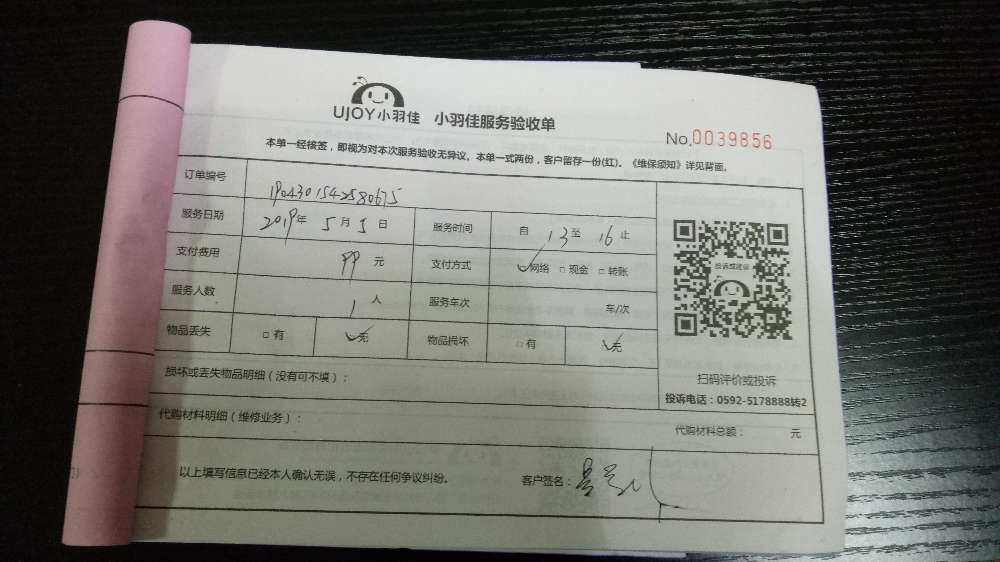 UJOY小羽佳 小羽佳服务验收单
No.0039856
本单一经接签，即视为对本次服务验收无异议。本单一式两份，客户留存一份(红)。《维保须知》详见背面。
订单编号 1904301542580675
服务日期 2019年 5月5日 服务时间 自 13 至 16 止
支付费用 99 元 支付方式 网络 □ 现金 □ 转账
投诉或建议
服务人数 1 人 服务车次 车/次
物品丢失 □有 无 物品损坏 □有 无
扫码评价或投诉
损坏或丢失物品明细（没有可不填）：
投诉电话：0592-5178888转2
代购材料明细（维修业务）：
代购材料总额： 元
以上填写信息已经本人确认无误，不存在任何争议纠纷。 客户签名：